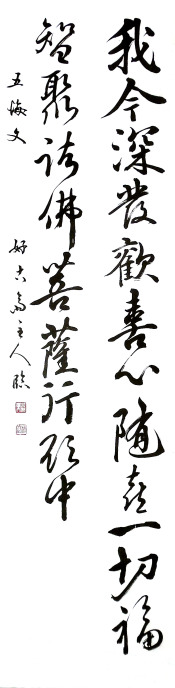 我今深發歡喜心隨喜一切福
智聚諸佛菩薩行願中
五悔文
好古齋主人臨